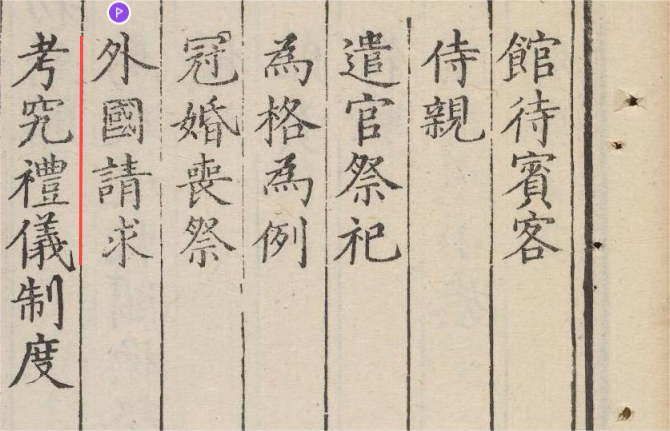 館待賓客
侍親
遣官祭祀
為格為例
冠婚喪祭
外國請求
考究禮儀制度